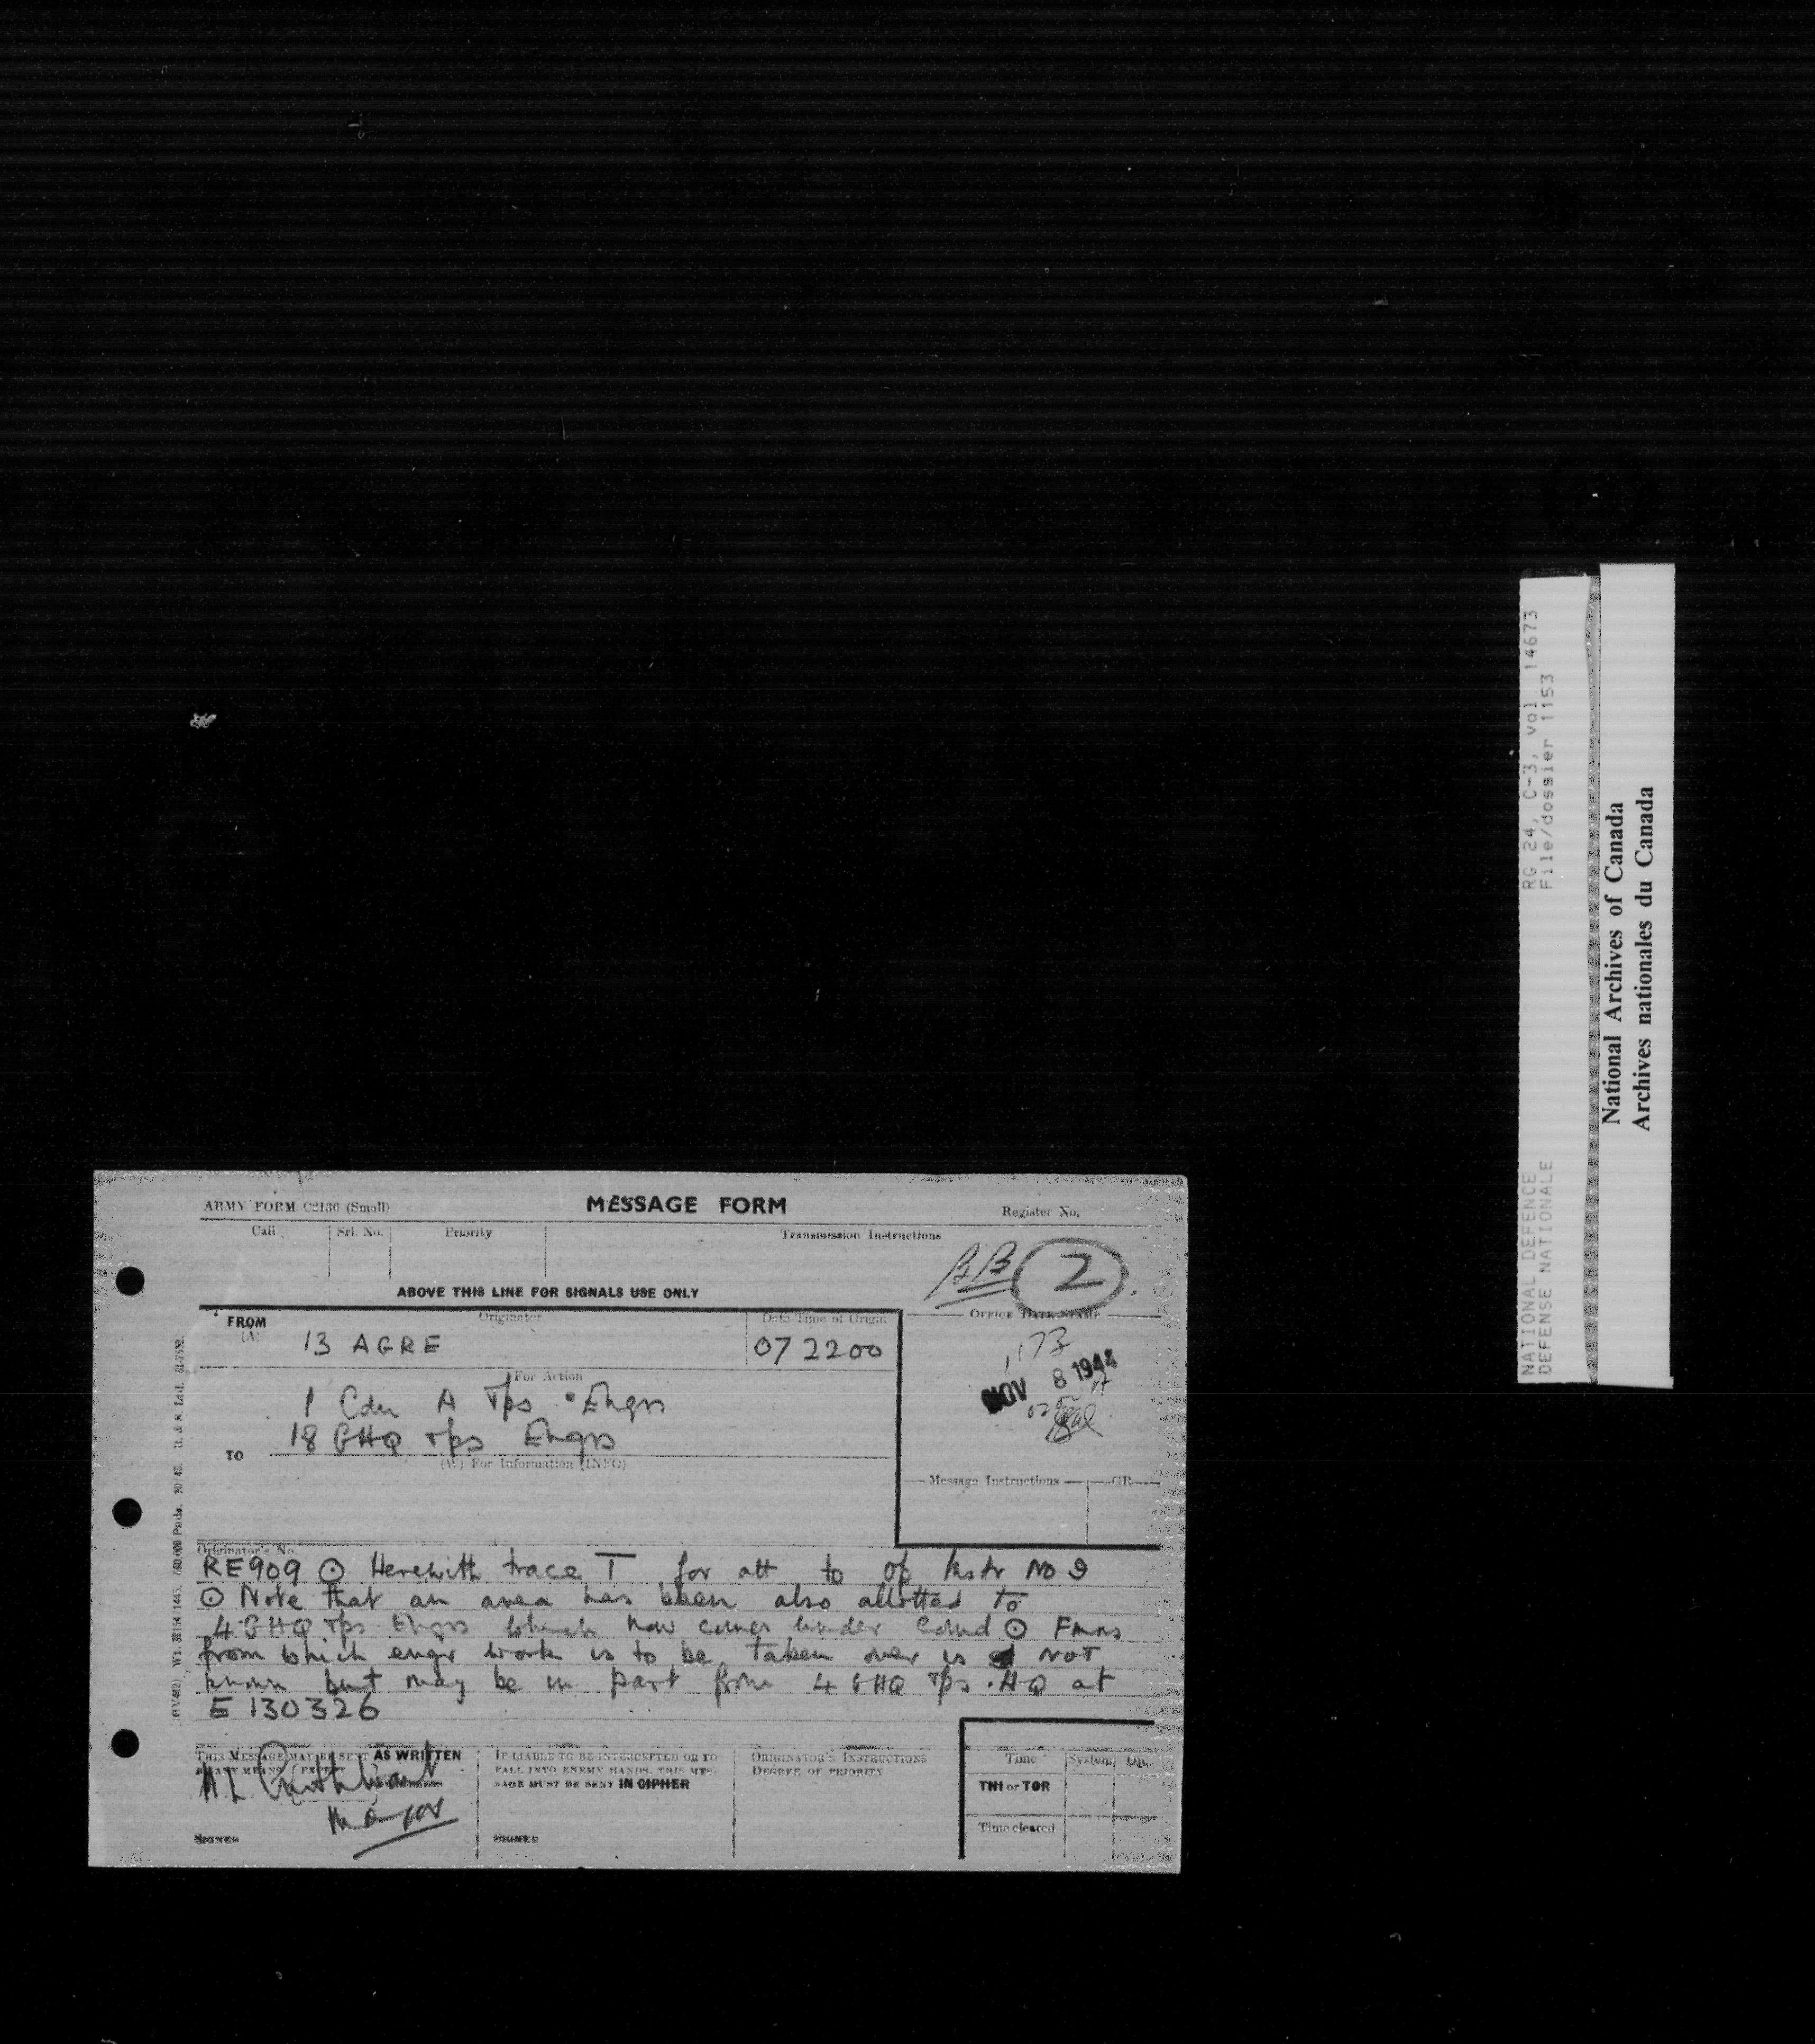 ARMY FORM C2136 (Small)
MESSAGE FORM
Register No.
Call
Srl. No.
Priority
Transmission Instructions
BB 2
ABOVE THIS LINE FOR SIGNALS USE ONLY
FROM
(A)
Originator
Date Time of Origin
OFFICE DATE STAMP
13 AGRE
07 2200
NOV 8 1944
For Action
1 Cdn A Tps Engrs
18 GHQ Tps Engrs
TO
(W) For Information (INFO)
Message Instructions
GR
Originator's No.
RE909 ⊙ Herewith trace T for att to Op Instr No 9
⊙ Note that an area has been also allotted to
4 GHQ Tps Engrs which now comes under comd ⊙ Fmns
from which engr work is to be taken over is NOT
known but may be in part from 4 GHQ Tps . HQ at
E 130326
THIS MESSAGE MAY BE SENT AS WRITTEN
BY ANY MEANS EXCEPT
WIRELESS
Major
SIGNED
IF LIABLE TO BE INTERCEPTED OR TO
FALL INTO ENEMY HANDS, THIS MES-
SAGE MUST BE SENT IN CIPHER
SIGNED
ORIGINATOR'S INSTRUCTIONS
DEGREE OF PRIORITY
Time
System
Op.
THI or TOR
Time cleared
Wt. 32154/1445. 660,000 Pads. 10/43. B. & S. Ltd. 51-7552.
NATIONAL DEFENCE
DEFENSE NATIONALE
RG 24, C-3, vol. 14673
File/dossier 1153
National Archives of Canada
Archives nationales du Canada